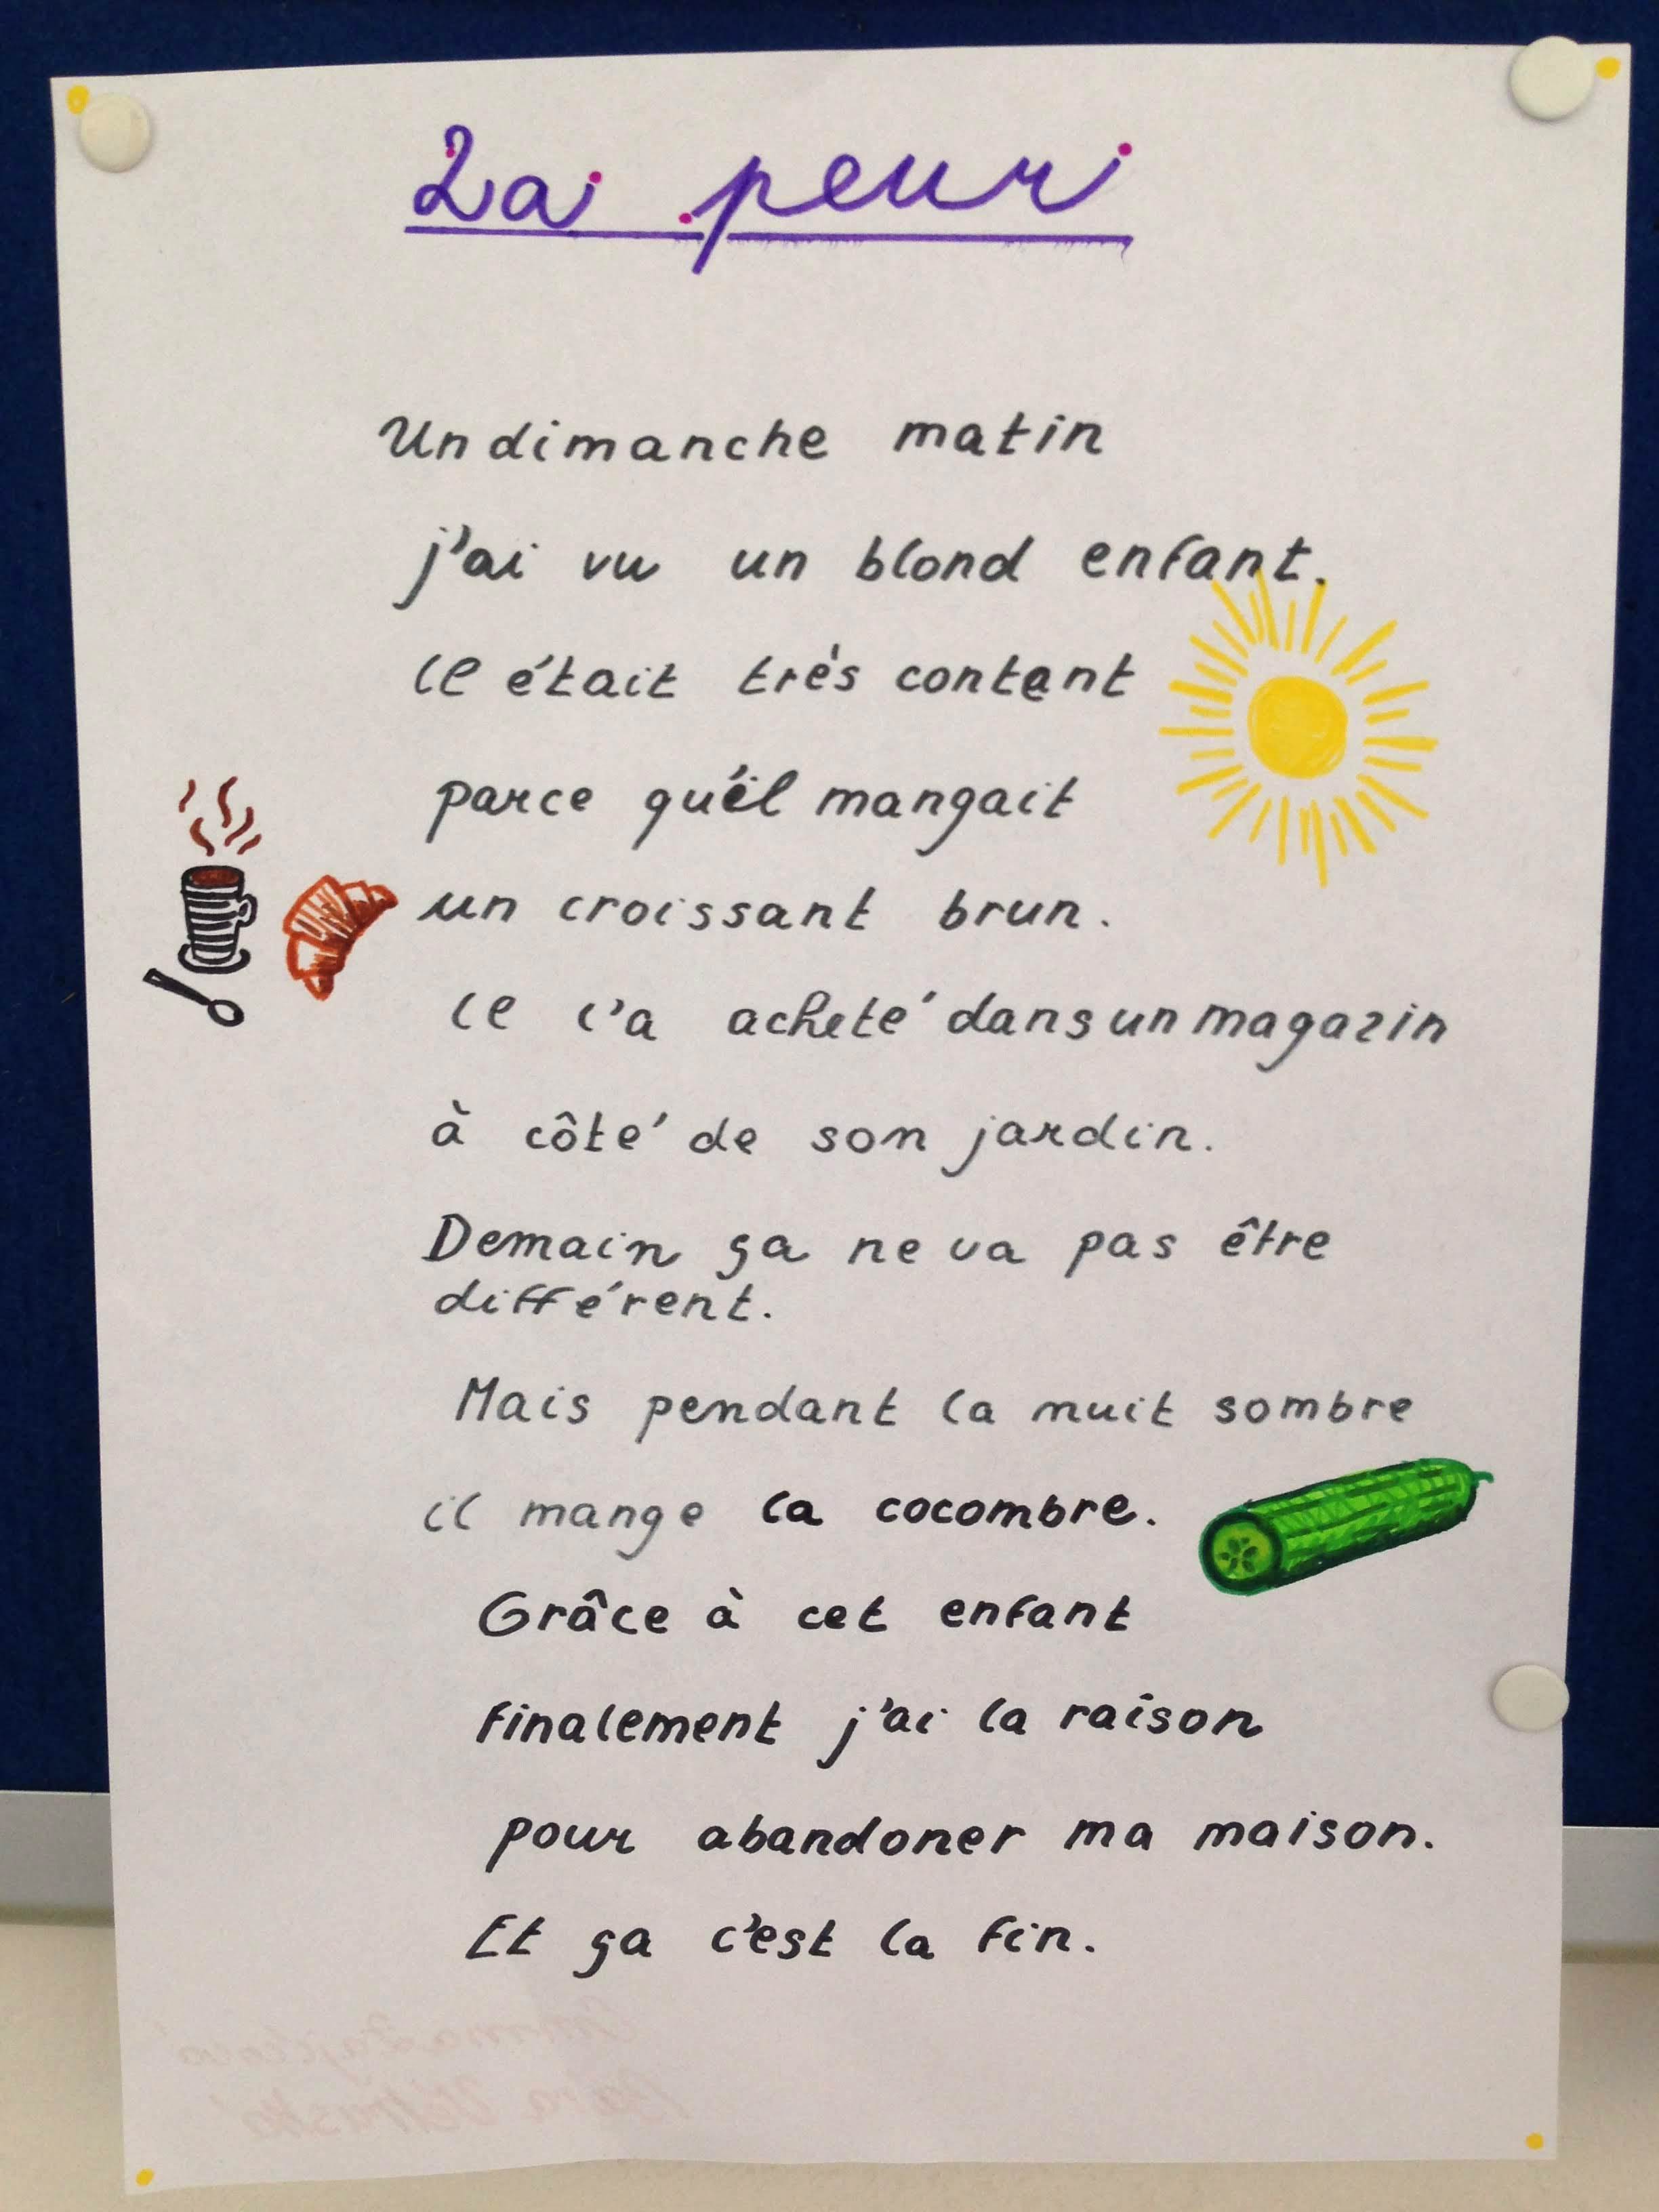 La peur
Un dimanche matin
j'ai vu un blond enfant.
Il était très content
parce qu'il mangait
un croissant brun.
Il l'a acheté dans un magazin
à côté de son jardin.
Demain ça ne va pas être
différent.
Mais pendant la nuit sombre
il mange la cocombre.
Grâce à cet enfant
finalement j'ai la raison
pour abandoner ma maison.
Et ça c'est la fin.